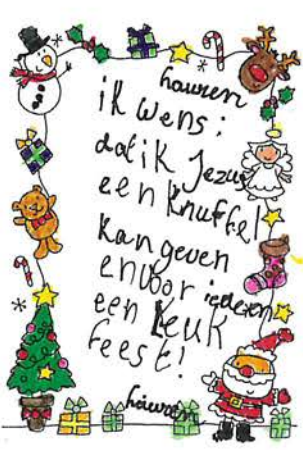 ik wens:
dat ik Jezus
een knuffel
kan geven
en voor iedereen
een leuk
feest!